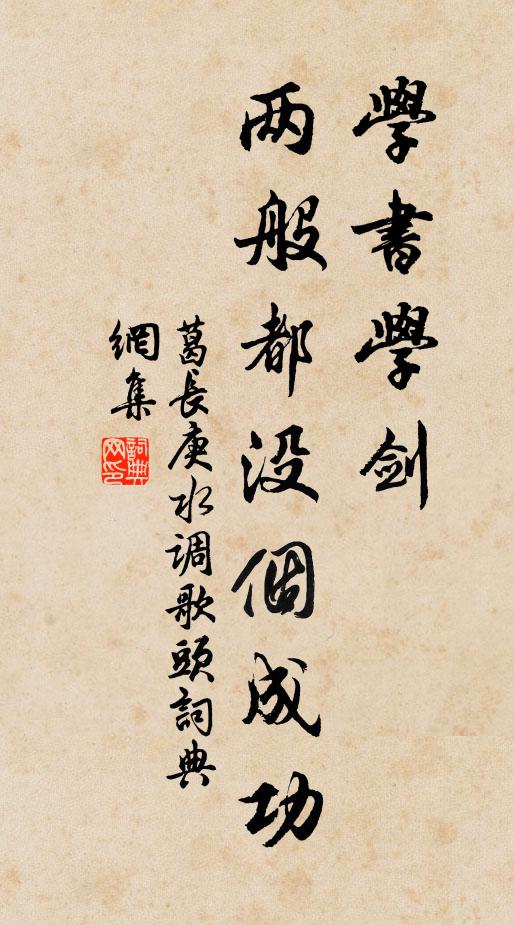 學書學劍
两般都没個成功
葛長庚水调歌頭詞典
網集
詞典
网印